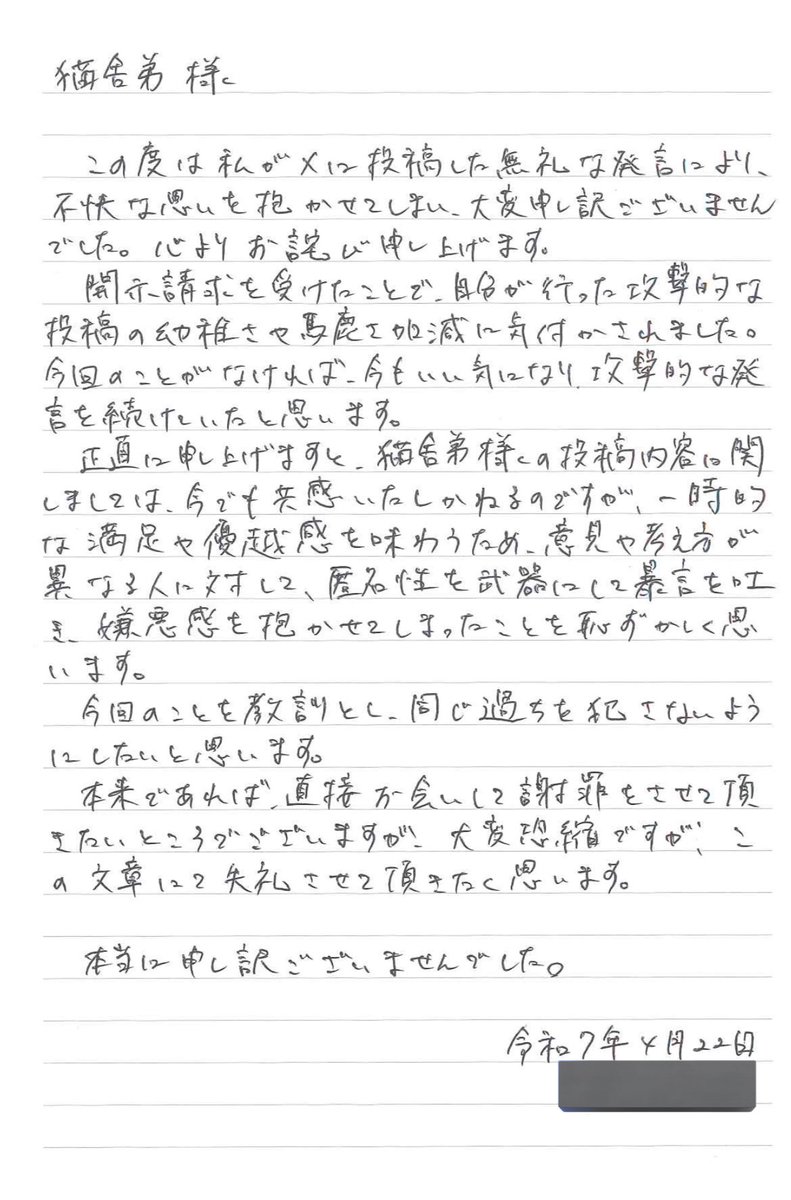 猫舎弟 様
この度は私がXに投稿した無礼な発言により、
不快な思いを抱かせてしまい、大変申し訳ございません
でした。心よりお詫び申し上げます。
開示請求を受けたことで、自分が行った攻撃的な
投稿の幼稚さや馬鹿さ加減に気付かされました。
今回のことがなければ、今もいい気になり、攻撃的な発
言を続けていたと思います。
正直に申し上げますと、猫舎弟様の投稿内容に関
しましては、今でも共感いたしかねるのですが、一時的
な満足や優越感を味わうため、意見や考え方が
異なる人に対して、匿名性を武器にして暴言を吐
き、嫌悪感を抱かせてしまったことを恥ずかしく思
います。
今回のことを教訓とし、同じ過ちを犯さないよう
にしたいと思います。
本来であれば、直接お会いして謝罪をさせて頂
きたいところでございますが、大変恐縮ですが、こ
の文章にて失礼させて頂きたく思います。
本当に申し訳ございませんでした。
令和7年4月22日